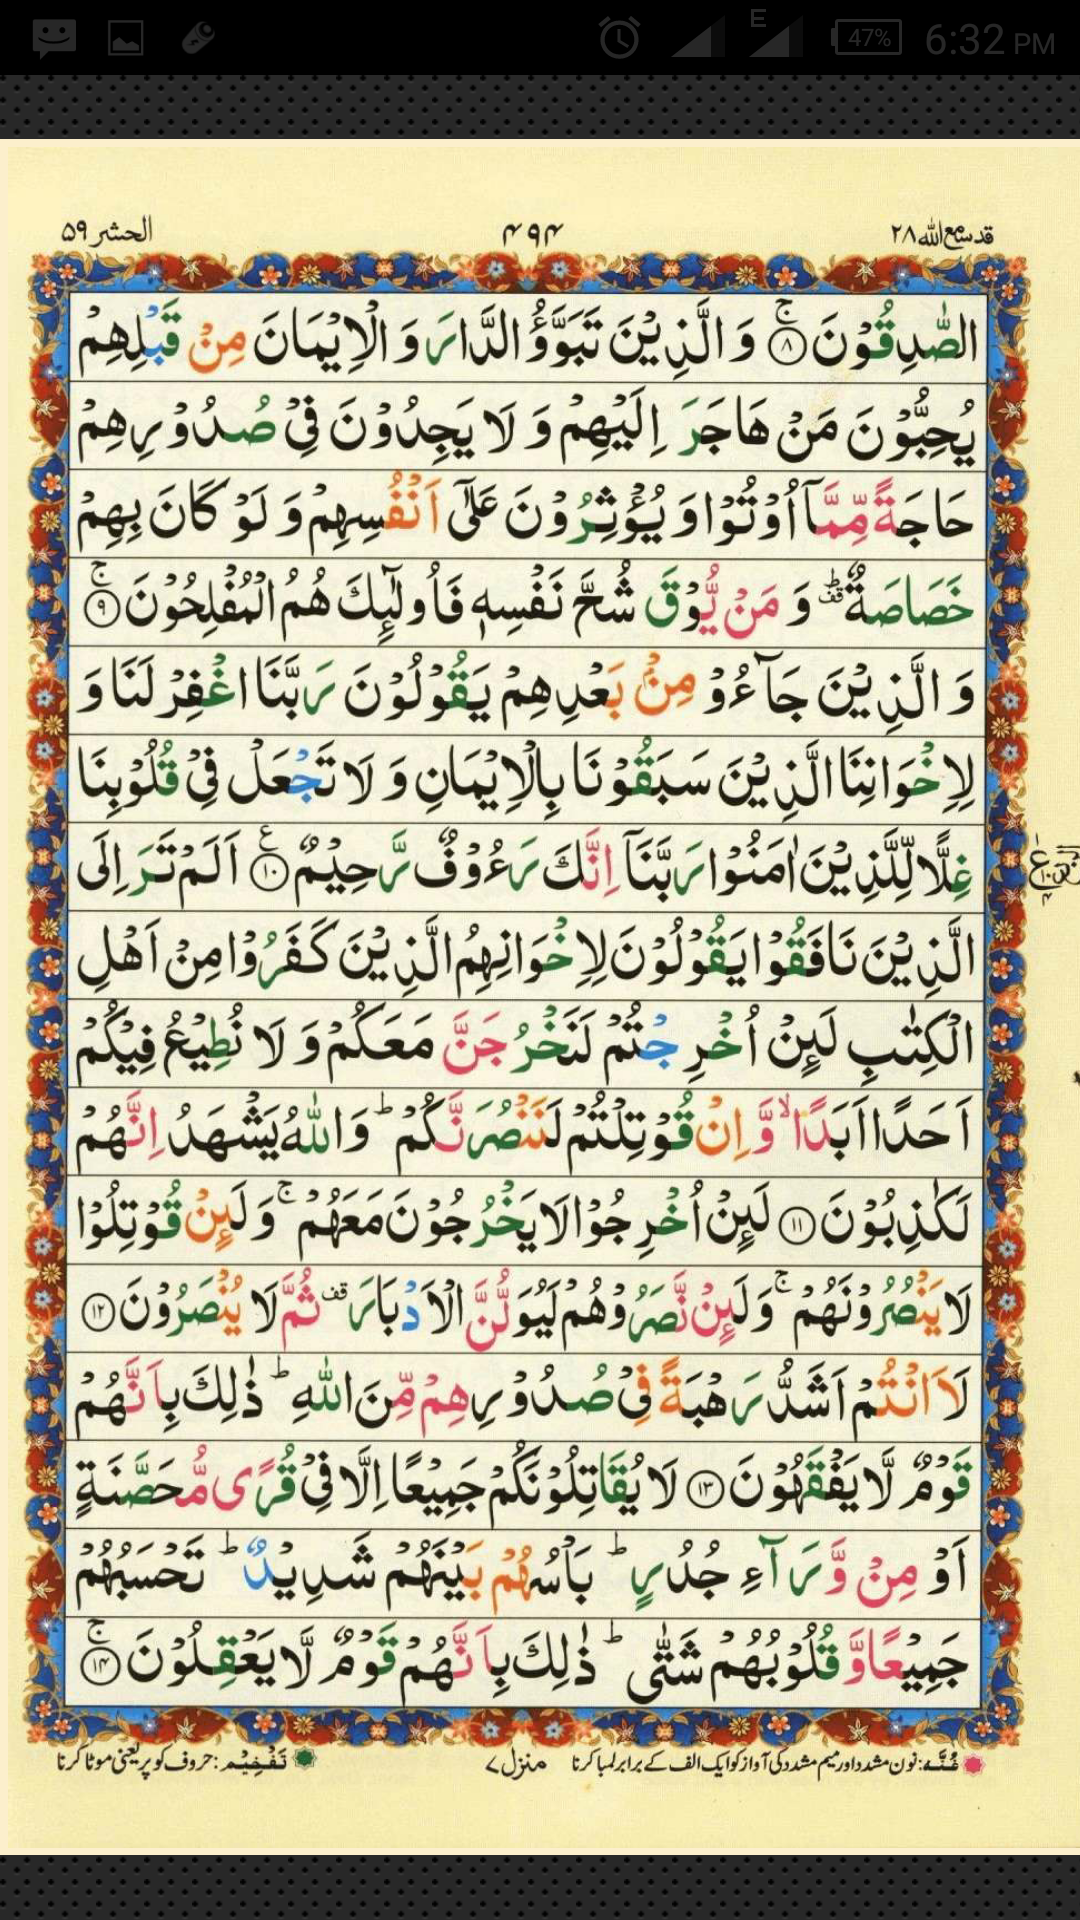 47% 6:32 PM
E
قد سمع الله ۲۸
۴۹۴
الحشر ۵۹
الصّٰدِقُوْنَ ۚ﴿۸﴾ وَ الَّذِیْنَ تَبَوَّؤُ الدَّارَ وَ الْاِیْمَانَ مِنْ قَبْلِهِمْ
یُحِبُّوْنَ مَنْ هَاجَرَ اِلَیْهِمْ وَ لَا یَجِدُوْنَ فِیْ صُدُوْرِهِمْ
حَاجَةً مِّمَّاۤ اُوْتُوْا وَ یُؤْثِرُوْنَ عَلٰۤی اَنْفُسِهِمْ وَ لَوْ كَانَ بِهِمْ
خَصَاصَةٌ ؕ۫ وَ مَنْ یُّوْقَ شُحَّ نَفْسِهٖ فَاُولٰٓئِكَ هُمُ الْمُفْلِحُوْنَ ۚ﴿۹﴾
وَ الَّذِیْنَ جَآءُوْ مِنْۢ بَعْدِهِمْ یَقُوْلُوْنَ رَبَّنَا اغْفِرْ لَنَا وَ
لِاِخْوَانِنَا الَّذِیْنَ سَبَقُوْنَا بِالْاِیْمَانِ وَ لَا تَجْعَلْ فِیْ قُلُوْبِنَا
غِلًّا لِّلَّذِیْنَ اٰمَنُوْا رَبَّنَاۤ اِنَّكَ رَءُوْفٌ رَّحِیْمٌ ﴿۱۰﴾ع اَلَمْ تَرَ اِلَی
الَّذِیْنَ نَافَقُوْا یَقُوْلُوْنَ لِاِخْوَانِهِمُ الَّذِیْنَ كَفَرُوْا مِنْ اَهْلِ
الْكِتٰبِ لَئِنْ اُخْرِجْتُمْ لَنَخْرُجَنَّ مَعَكُمْ وَ لَا نُطِیْعُ فِیْكُمْ
اَحَدًا اَبَدًا ۙ وَّ اِنْ قُوْتِلْتُمْ لَنَنْصُرَنَّكُمْ ؕ وَ اللّٰهُ یَشْهَدُ اِنَّهُمْ
لَكٰذِبُوْنَ ﴿۱۱﴾ لَئِنْ اُخْرِجُوْا لَا یَخْرُجُوْنَ مَعَهُمْ ۚ وَ لَئِنْ قُوْتِلُوْا
لَا یَنْصُرُوْنَهُمْ ۚ وَ لَئِنْ نَّصَرُوْهُمْ لَیُوَلُّنَّ الْاَدْبَارَ قف ثُمَّ لَا یُنْصَرُوْنَ ﴿۱۲﴾
لَاَانْتُمْ اَشَدُّ رَهْبَةً فِیْ صُدُوْرِهِمْ مِّنَ اللّٰهِ ؕ ذٰلِكَ بِاَنَّهُمْ
قَوْمٌ لَّا یَفْقَهُوْنَ ﴿۱۳﴾ لَا یُقَاتِلُوْنَكُمْ جَمِیْعًا اِلَّا فِیْ قُرًی مُّحَصَّنَةٍ
اَوْ مِنْ وَّرَآءِ جُدُرٍ ؕ بَاْسُهُمْ بَیْنَهُمْ شَدِیْدٌ ؕ تَحْسَبُهُمْ
جَمِیْعًا وَّ قُلُوْبُهُمْ شَتّٰی ؕ ذٰلِكَ بِاَنَّهُمْ قَوْمٌ لَّا یَعْقِلُوْنَ ۚ﴿۱۴﴾
غُنَّہ: نون مشدد اور میم مشدد کی آواز کو ایک الف کے برابر لمبا کرنا
منزل ۷
تَفْخِیْم: حروف کو پُر یعنی موٹا کرنا